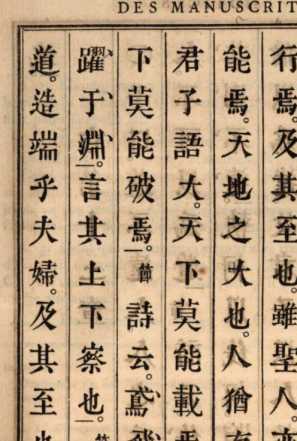 DES MANUSCRIT
行焉。及其至也。雖聖人
能焉。天地之大也。人猶
君子語大。天下莫能載
下莫能破焉。節詩云。鳶
躍于淵。言其上下察也。
道。造端乎夫婦。及其至